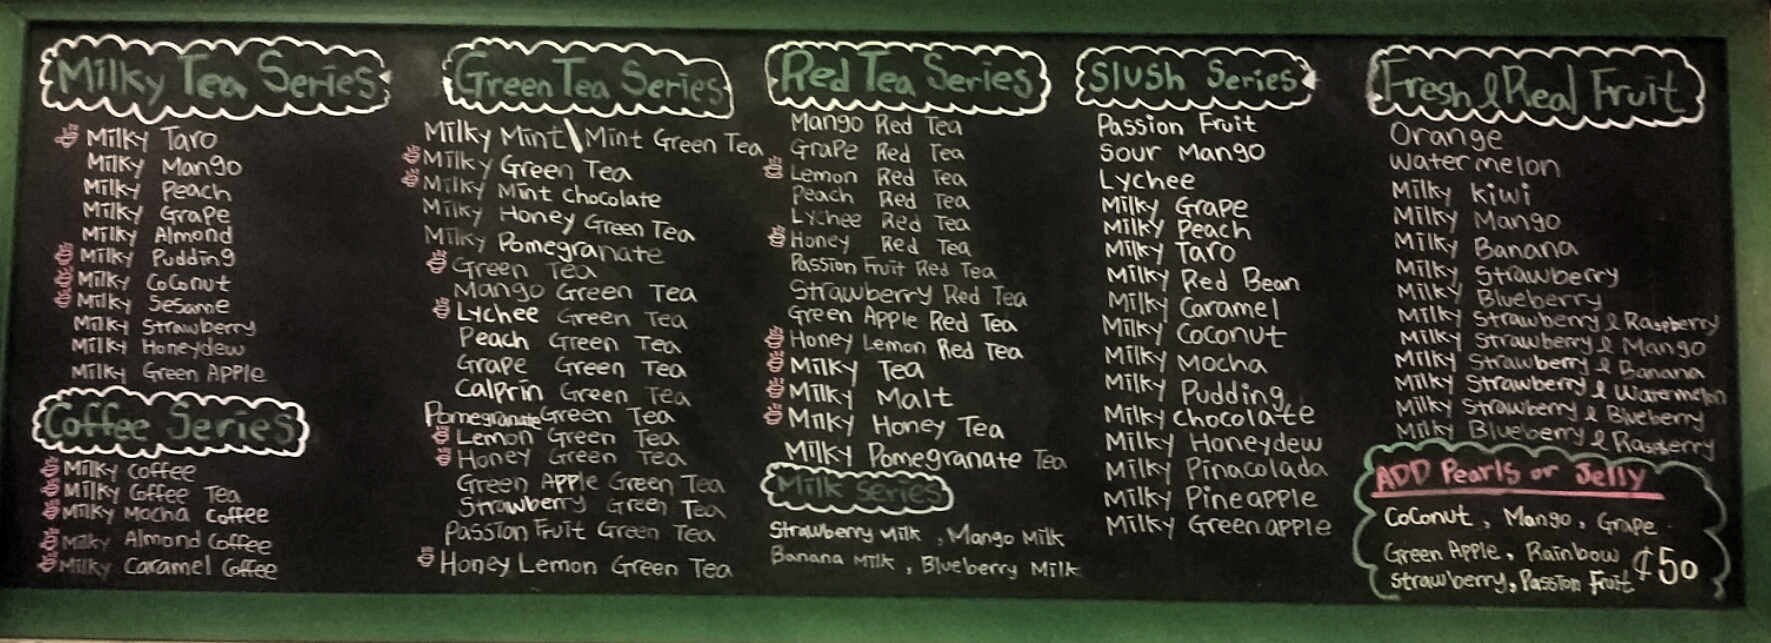 Milky Tea Series
Milky Taro
Milky Mango
Milky Peach
Milky Grape
Milky Almond
Milky Pudding
Milky Coconut
Milky Sesame
Milky Strawberry
Milky Honeydew
Milky Green Apple
Coffee Series
Milky Coffee
Milky Coffee Tea
Milky Mocha Coffee
Milky Almond Coffee
Milky Caramel Coffee
Green Tea Series
Milky Mint\Mint Green Tea
Milky Green Tea
Milky Mint Chocolate
Milky Honey Green Tea
Milky Pomegranate
Green Tea
Mango Green Tea
Lychee Green Tea
Peach Green Tea
Grape Green Tea
Calprin Green Tea
Pomegranate Green Tea
Lemon Green Tea
Honey Green Tea
Green Apple Green Tea
Strawberry Green Tea
Passion Fruit Green Tea
Honey Lemon Green Tea
Red Tea Series
Mango Red Tea
Grape Red Tea
Lemon Red Tea
Peach Red Tea
Lychee Red Tea
Honey Red Tea
Passion Fruit Red Tea
Strawberry Red Tea
Green Apple Red Tea
Honey Lemon Red Tea
Milky Tea
Milky Malt
Milky Honey Tea
Milky Pomegranate Tea
Milk Series
Strawberry Milk, Mango Milk
Banana Milk, Blueberry Milk
Slush Series
Passion Fruit
Sour Mango
Lychee
Milky Grape
Milky Peach
Milky Taro
Milky Red Bean
Milky Caramel
Milky Coconut
Milky Mocha
Milky Pudding
Milky Chocolate
Milky Honeydew
Milky Pinacolada
Milky Pineapple
Milky Greenapple
Fresh & Real Fruit
Orange
Watermelon
Milky Kiwi
Milky Mango
Milky Banana
Milky Strawberry
Milky Blueberry
Milky Strawberry & Raspberry
Milky Strawberry & Mango
Milky Strawberry & Banana
Milky Strawberry & Watermelon
Milky Strawberry & Blueberry
Milky Blueberry & Raspberry
ADD Pearls or Jelly
Coconut, Mango, Grape
Green Apple, Rainbow
Strawberry, Passion Fruit ¢50